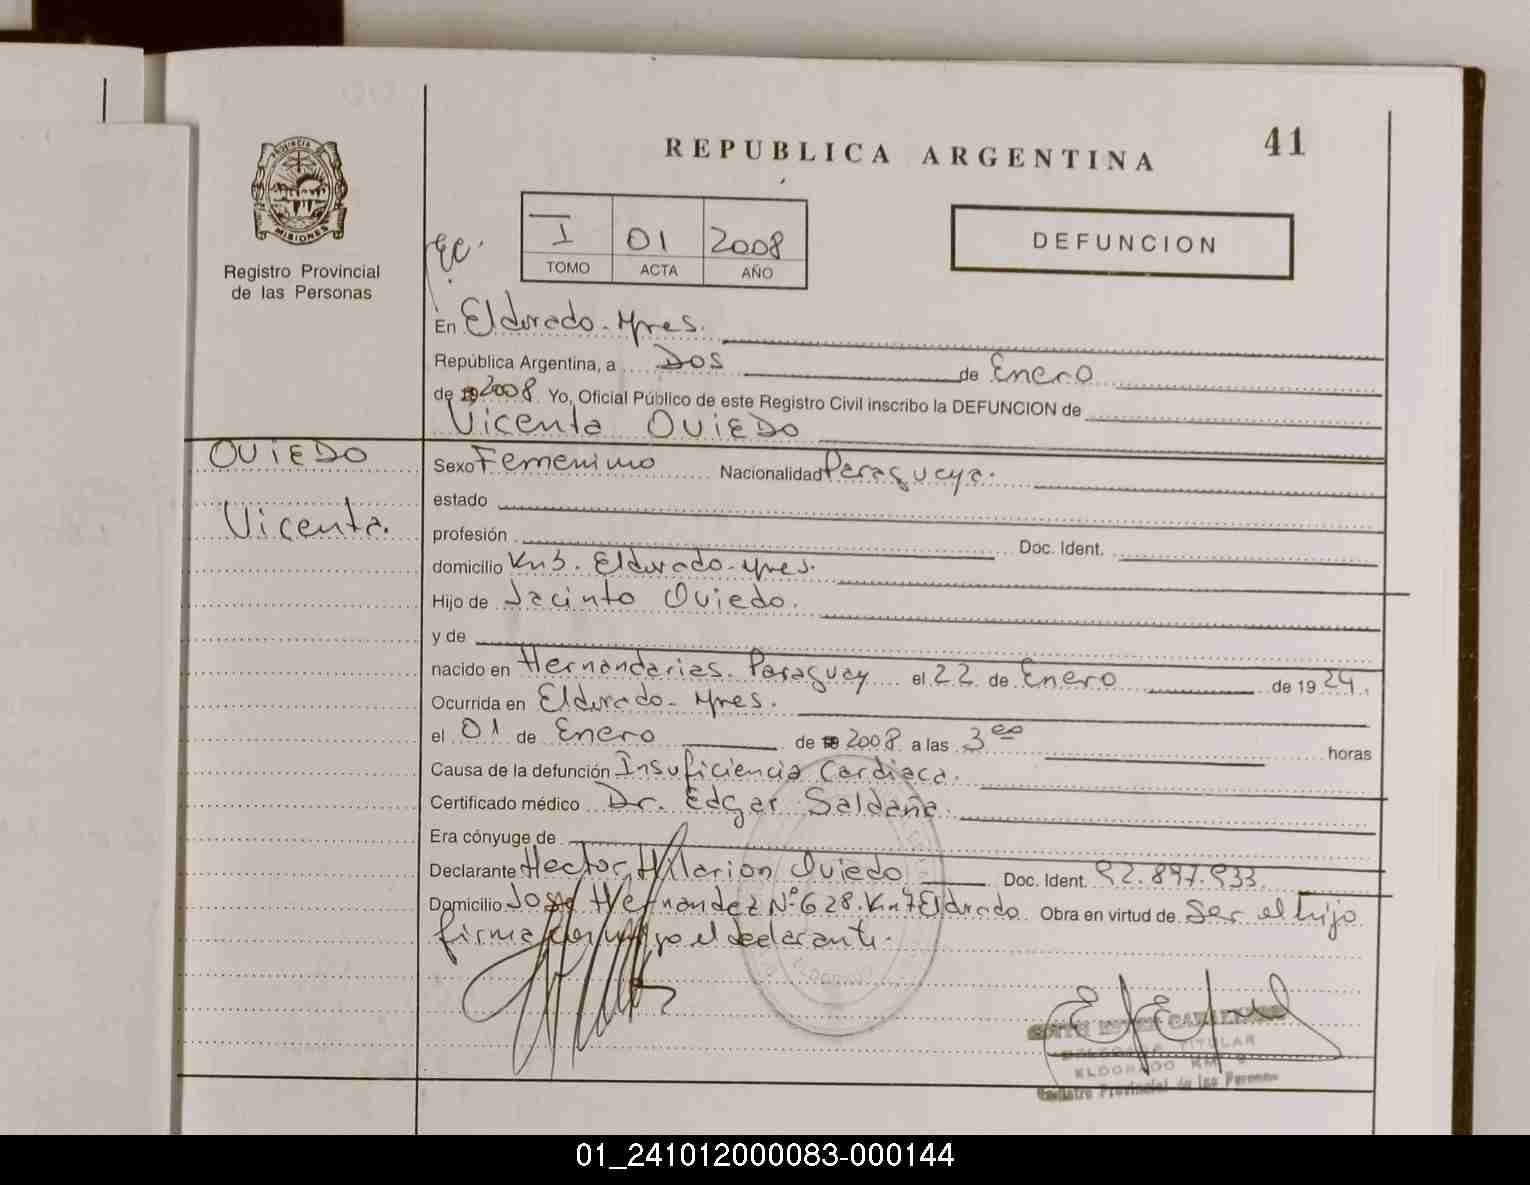 41
REPUBLICA ARGENTINA
PROVINCIA DE
MISIONES
Registro Provincial
de las Personas
I 01 2008
TOMO ACTA AÑO
DEFUNCION
En Eldorado - Mnes.
República Argentina, a Dos de Enero
de 19 2008. Yo, Oficial Público de este Registro Civil inscribo la DEFUNCION de
Vicenta OVIEDO
OVIEDO
Vicenta.
Sexo Femenino Nacionalidad Paraguaya.
estado
profesión Doc. Ident.
domicilio Km 3. Eldorado - Mnes.
Hijo de Jacinto Oviedo.
y de
nacido en Hernandarias. Paraguay el 22 de Enero de 19 24.
Ocurrida en Eldorado - Mnes.
el 01 de Enero de 19 2008 a las 3 00 horas
Causa de la defunción Insuficiencia Cardiaca.
Certificado médico Dr. Edgar Saldaña.
Era cónyuge de
Declarante Hector Hilarion Oviedo Doc. Ident. 92.897.933
Domicilio José Hernandez Nº 628. Km 7 Eldorado. Obra en virtud de Ser el hijo
firma conmigo el declarante.
ELDORADO
DELEGADA TITULAR
ELDORADO KM
Registro Provincial de las Personas
01_241012000083-000144